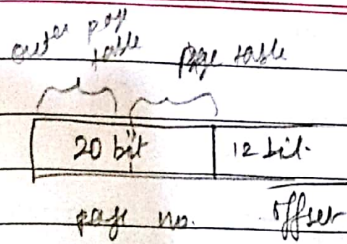 outer page
table page table
20 bit 12 bit.
page no. offset